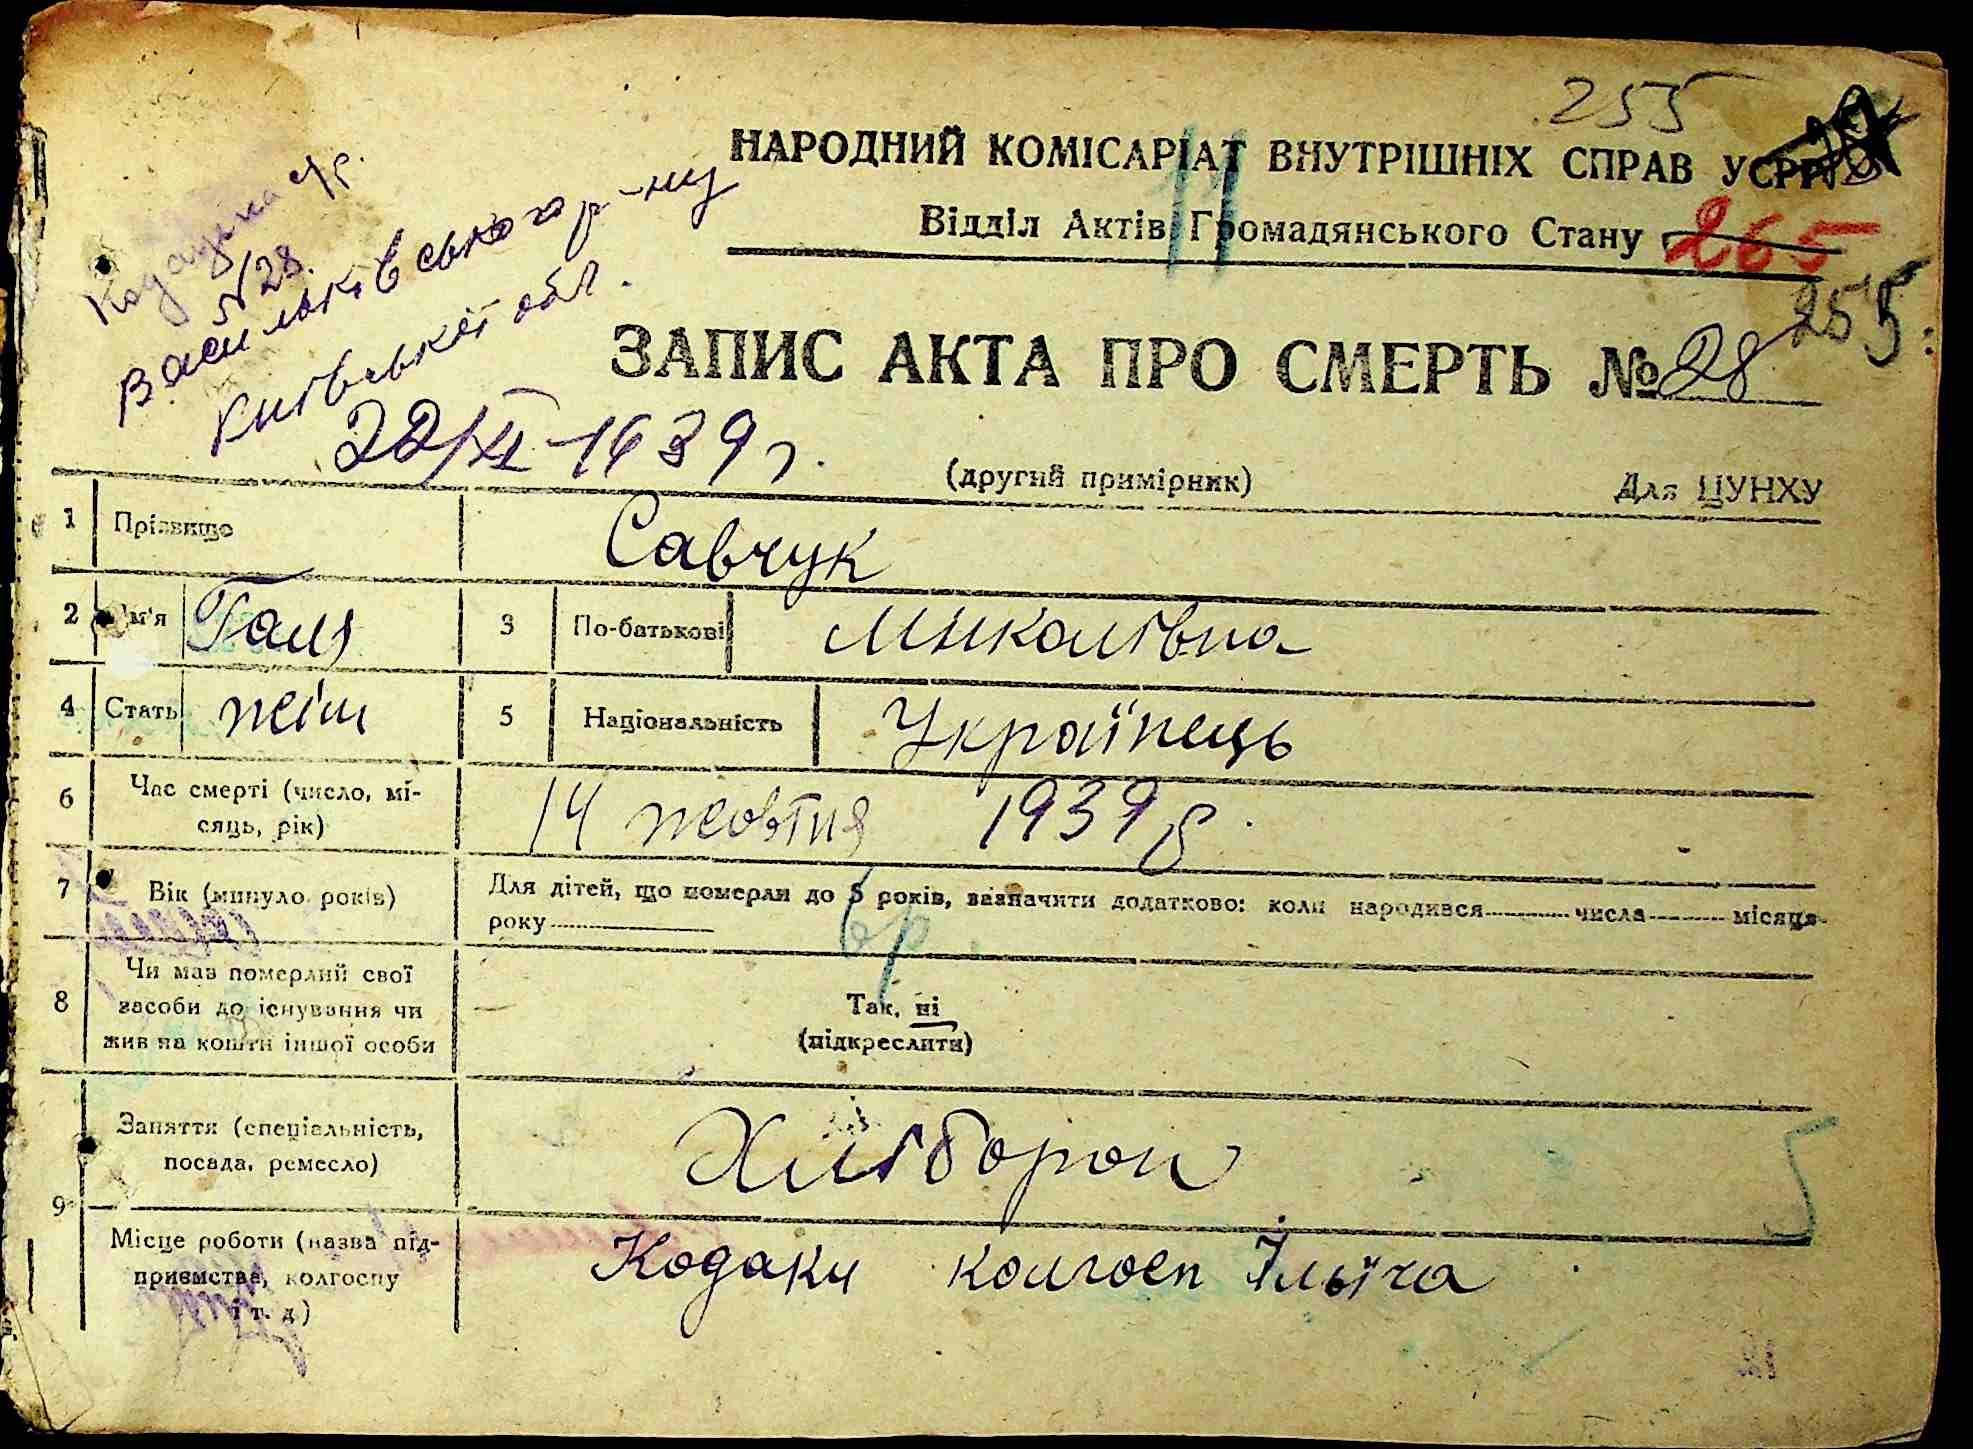 255
НАРОДНИЙ КОМІСАРІАТ ВНУТРІШНІХ СПРАВ УСРР
11
Відділ Актів Громадянського Стану
265
255
№ 28.
Васильківського р-ну
Київської обл.
ЗАПИС АКТА ПРО СМЕРТЬ № 28
22/XI-1939 г.
(другий примірник)
Для ЦУНХУ
1 Прізвище Савчук
2 Ім'я Галя 3 По-батькові Миколаївна
4 Стать жін 5 Національність Українець
6 Час смерті (число, мі-
сяць, рік) 14 жовтня 1939 р.
7 Вік (минуло років) Для дітей, що померли до 5 років, зазначити додатково: коли народився числа місяця
року
6 р.
8 Чи мав померлий свої
засоби до існування чи
жив на кошти іншої особи
Так, ні
(підкреслити)
9 Заняття (спеціальність,
посада, ремесло) Хлібороб
Місце роботи (назва під-
приємства, колгоспу
і т. д.) Кодаки колгосп Ілліча